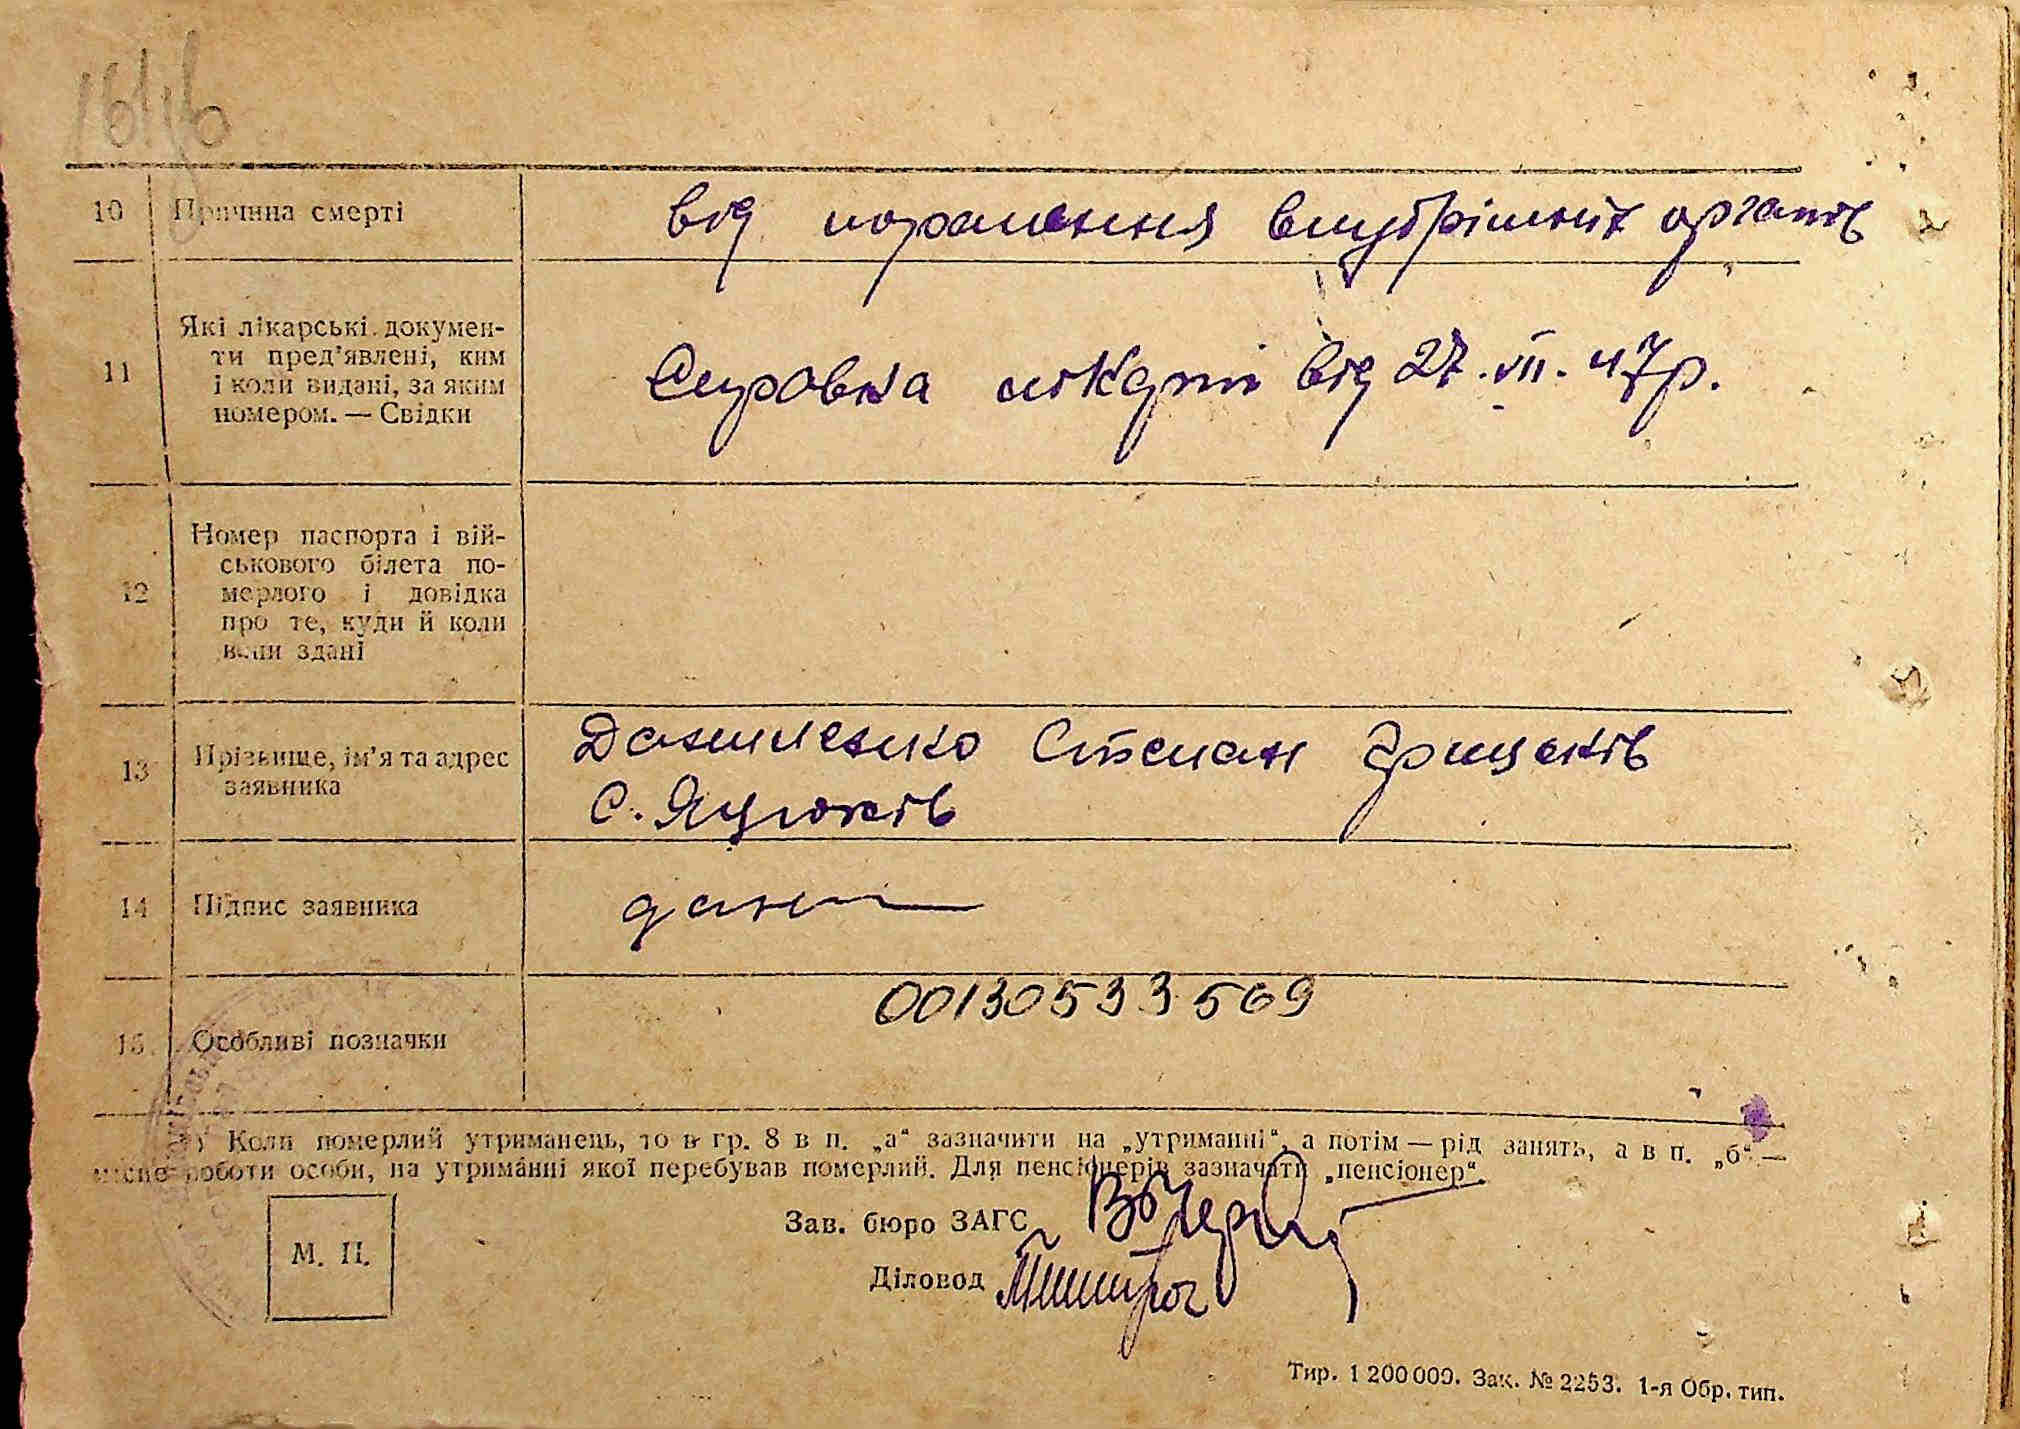 10 Причина смерті від поранення внутрішніх органів
11 Які лікарські документи пред'явлені, ким і коли видані, за яким номером. — Свідки
Справка лікарні від 27.VII.47р.
12 Номер паспорта і вій-
ського білета по-
мерлого і довідка
про те, куди й коли
вони здані
13 Прізвище, ім'я та адрес
заявника
Даниленко Степан Грицьків
с. Яцюків
14 Підпис заявника дани
00130533569
15 Особливі позначки
*) Коли померлий утриманець, то в гр. 8 в п. „а“ зазначити на „утриманні“, а потім — рід занять, а в п. „б“ —
місце роботи особи, на утриманні якої перебував померлий. Для пенсіонерів зазначати „пенсіонер“.
Зав. бюро ЗАГС
М. П.
Діловод
Тир. 1 200 000. Зак. № 2253. 1-я Обр. тип.